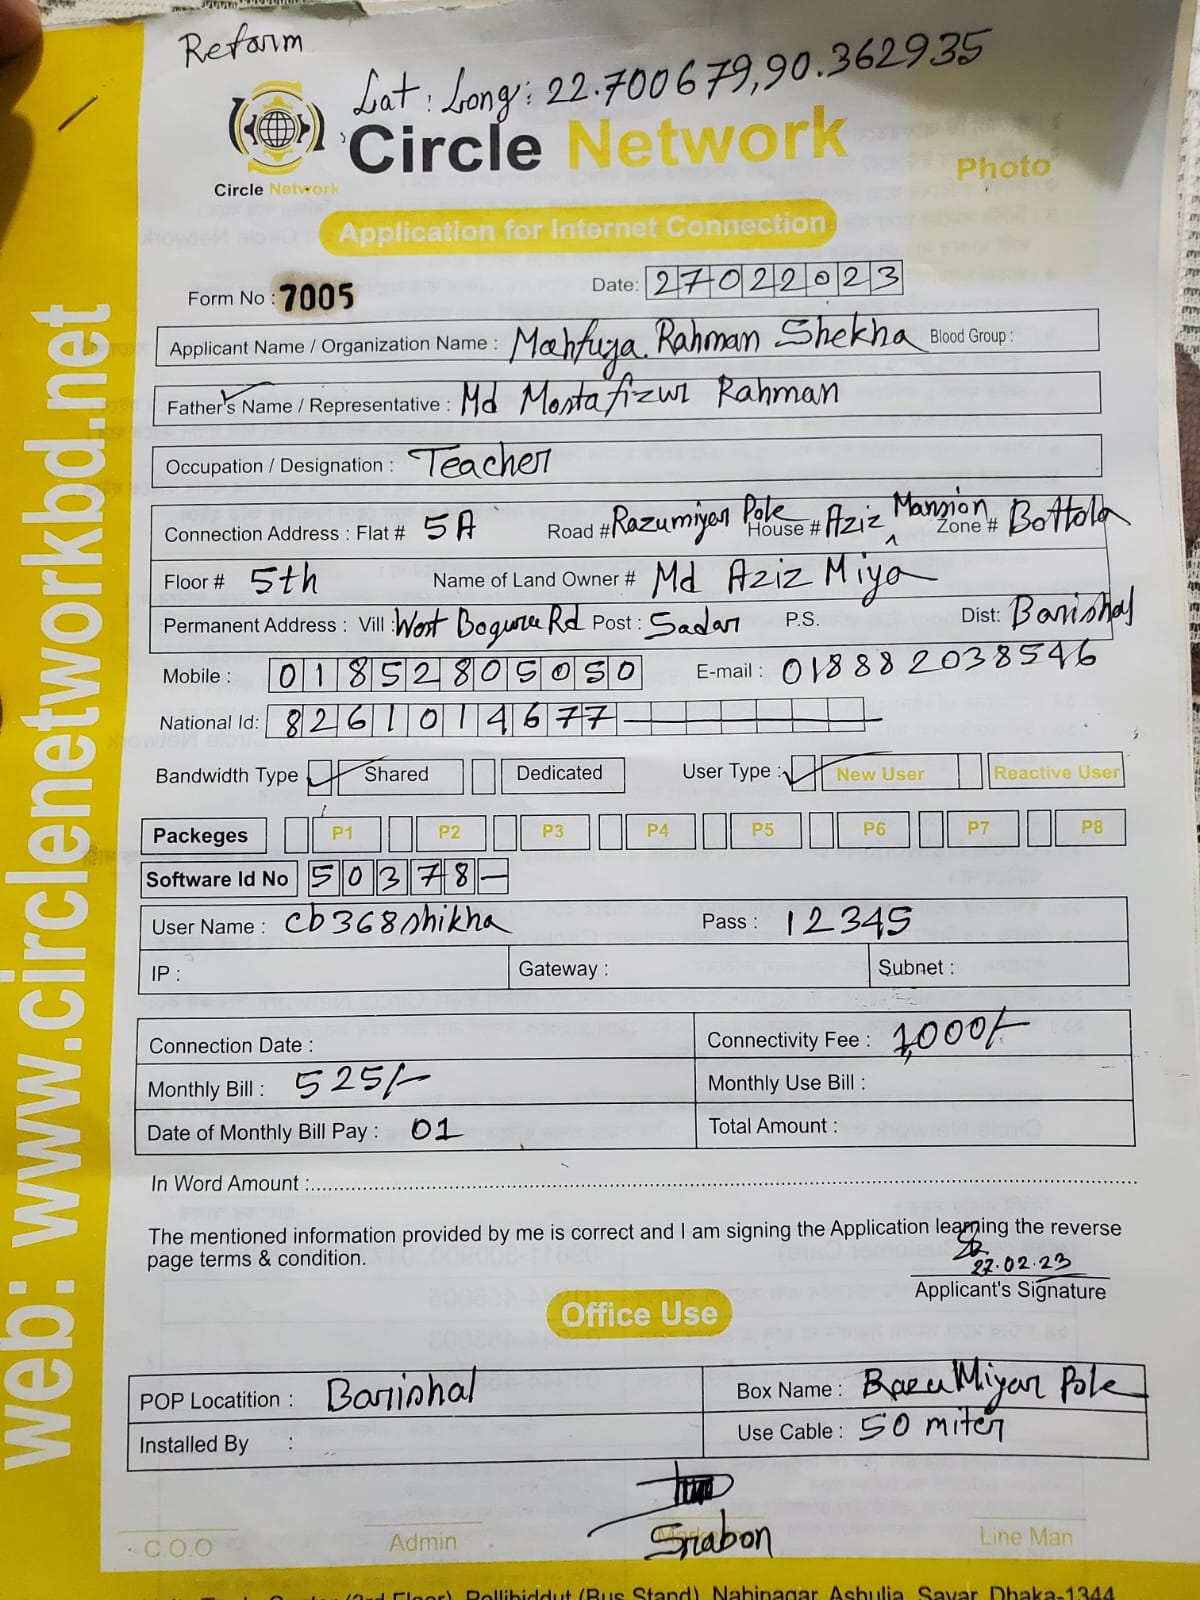 Reform
Lat: Long: 22.700679,90.362935
Circle Network
Circle Network
Photo
Application for Internet Connection
Form No : 7005
Date: 27022023
Applicant Name / Organization Name : Mahfuya. Rahman Shekha Blood Group :
Father's Name / Representative : Md Mostafizur Rahman
Occupation / Designation : Teacher
Connection Address : Flat # 5A Road # Razumiyar Pole House # Aziz Mansion Zone # Bottola
Floor # 5th Name of Land Owner # Md Aziz Miya
Permanent Address : Vill : West Bogura Rd Post : Sadar P.S. Dist: Barishal
Mobile : 01852805050 E-mail : 018882038546
National Id: 8261014677
Bandwidth Type Shared Dedicated User Type : New User Reactive User
Packeges P1 P2 P3 P4 P5 P6 P7 P8
Software Id No 50378-
User Name : cb368shikha Pass : 12345
IP : Gateway : Subnet :
Connection Date : Connectivity Fee : 1,000/-
Monthly Bill : 525/- Monthly Use Bill :
Date of Monthly Bill Pay : 01 Total Amount :
In Word Amount :
The mentioned information provided by me is correct and I am signing the Application learning the reverse
page terms & condition.
27.02.23
Applicant's Signature
Office Use
POP Locatition : Barishal Box Name : Razu Miyar Pole
Installed By : Use Cable : 50 miter
Srabon
C.O.O Admin Line Man
(3rd Floor), Pollibiddut (Bus Stand), Nabinagar, Ashulia, Savar, Dhaka-1344
web: www.circlenetworkbd.net